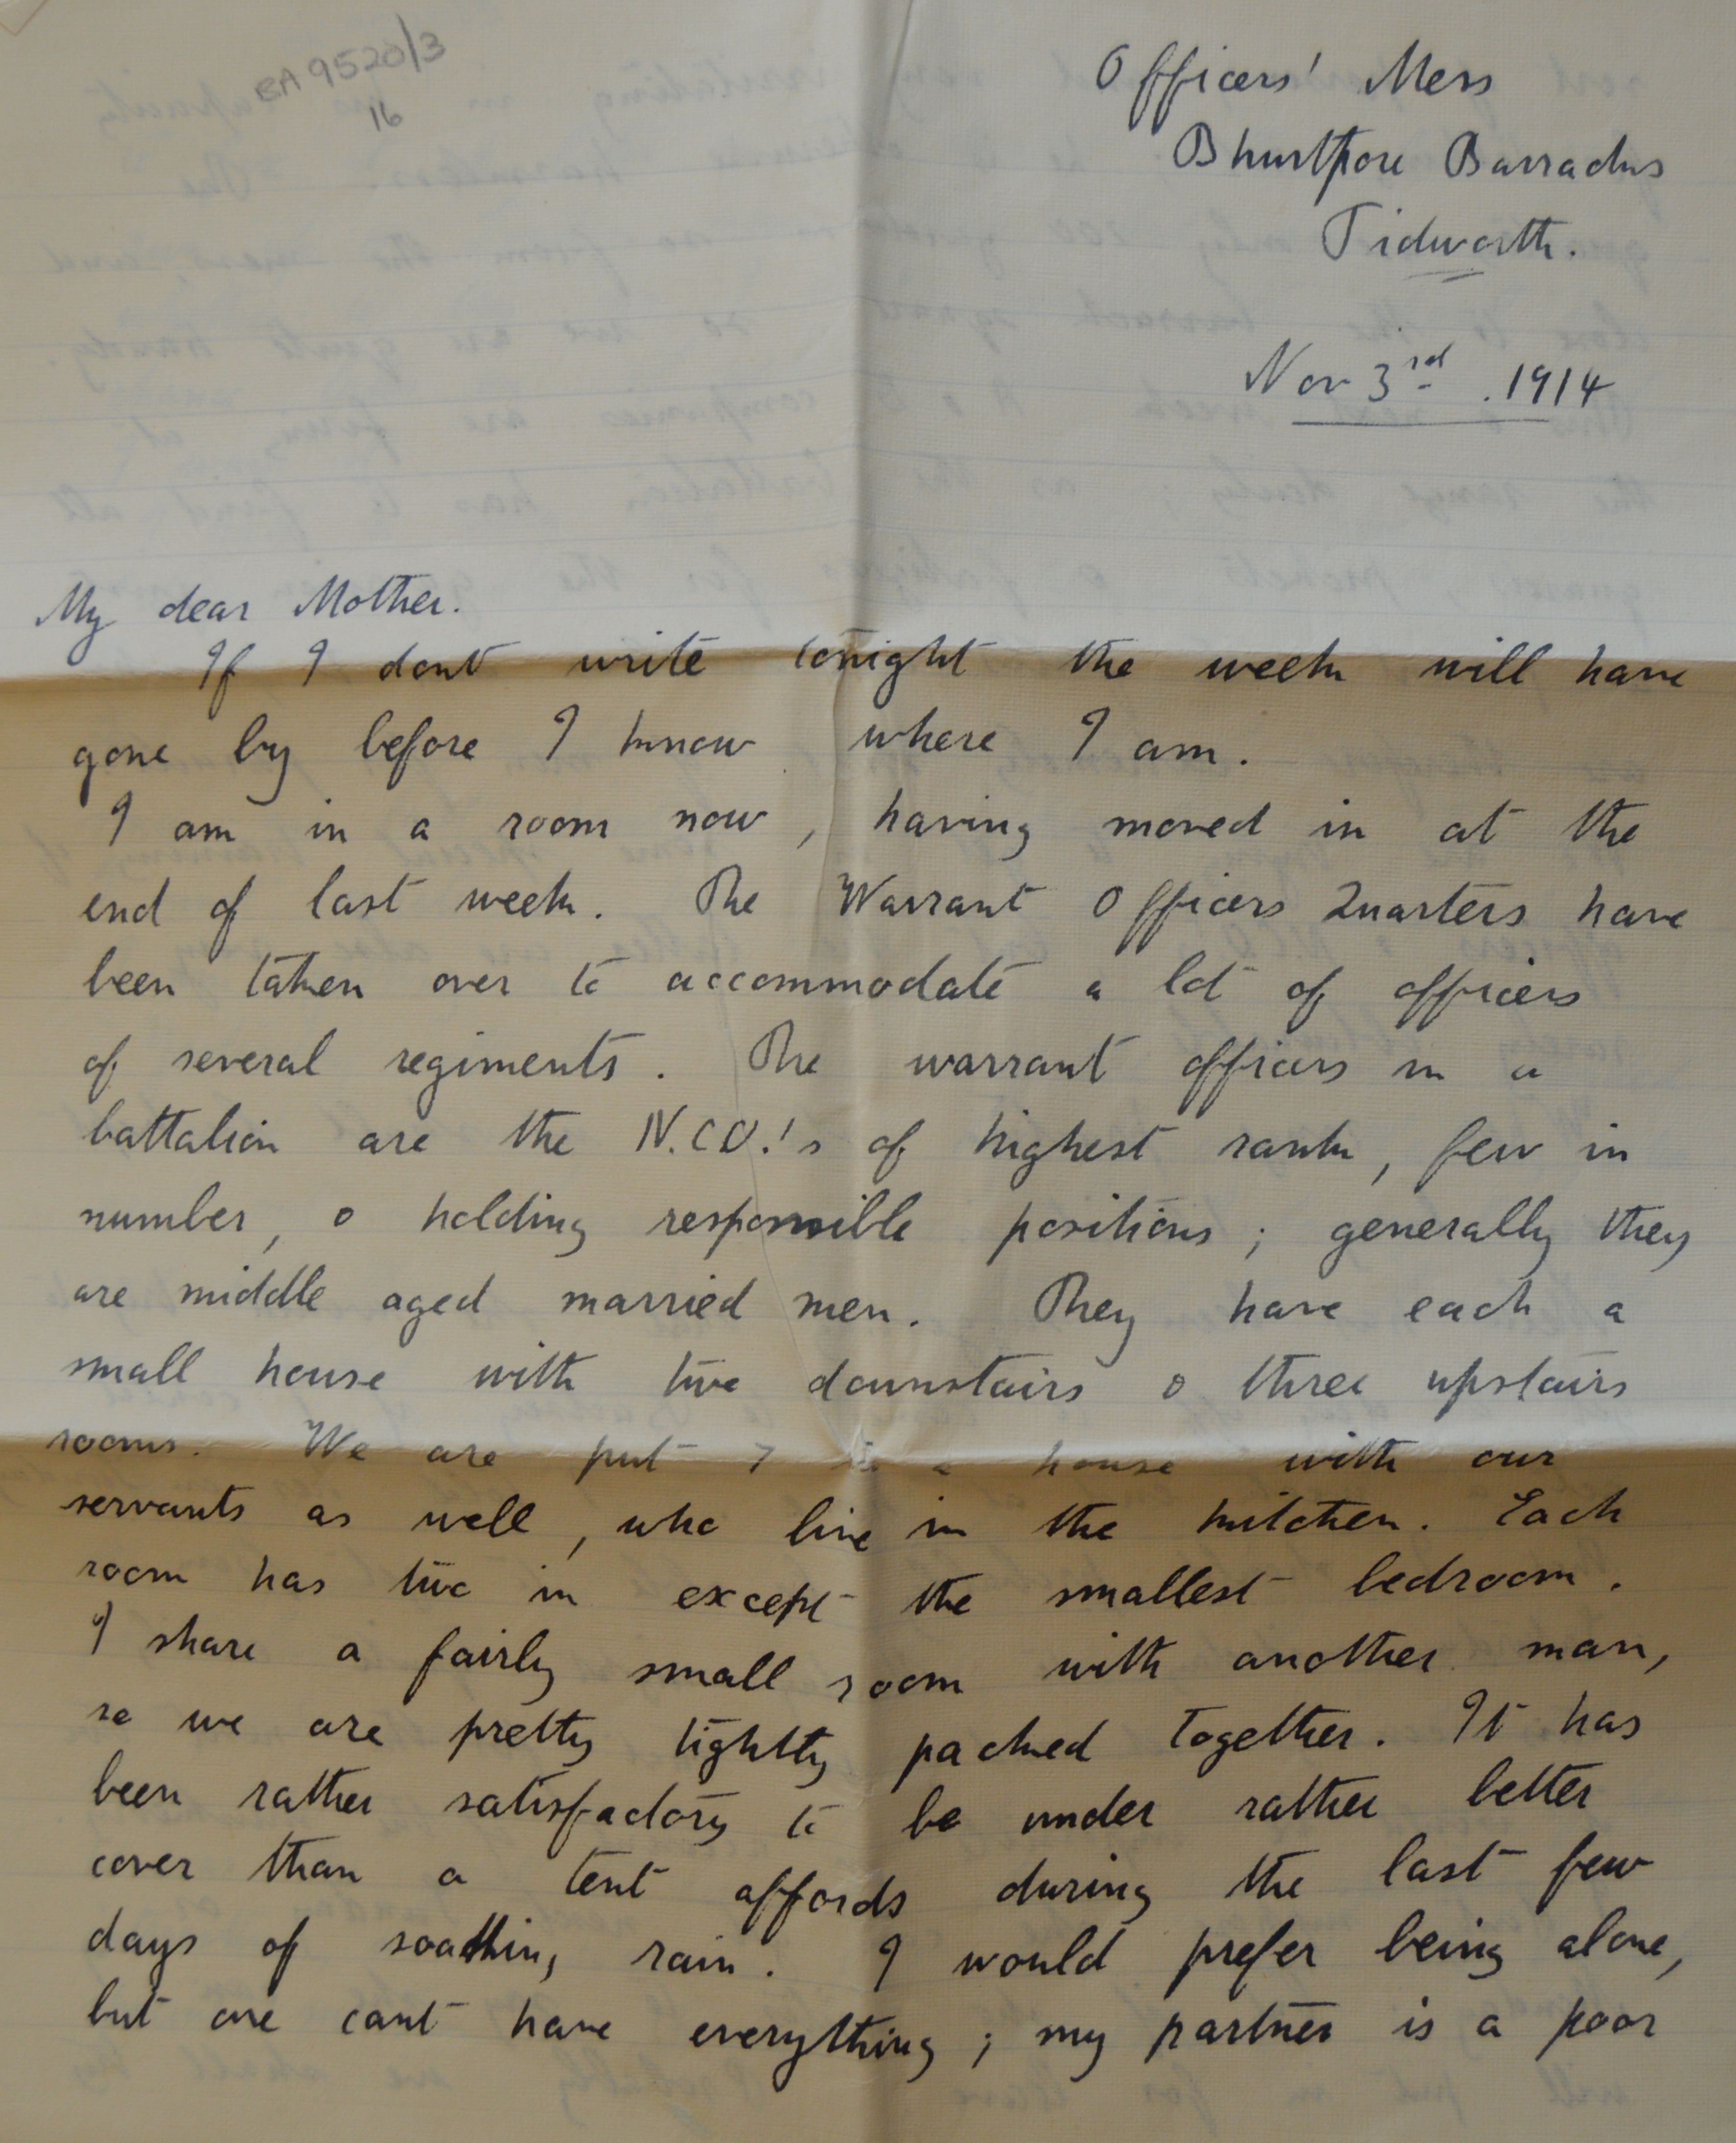 EA 9520/3
16
Officers' Mess
Bhurtpore Barracks
Tidworth.
Nov 3rd . 1914
My dear Mother.
If I dont write tonight the week will have
gone by before I know where I am.
I am in a room now, having moved in at the
end of last week. The Warrant Officers Quarters have
been taken over to accommodate a lot of officers
of several regiments. The warrant officers in a
battalion are the N.C.O.'s of highest rank, few in
number, & holding responsible positions; generally they
are middle aged married men. They have each a
small house with two downstairs & three upstairs
rooms. We are put 7 in a house with our
servants as well, who live in the kitchen. Each
room has two in except the smallest bedroom.
I share a fairly small room with another man,
so we are pretty tightly packed together. It has
been rather satisfactory to be under rather better
cover than a tent affords during the last few
days of soaking rain. I would prefer being alone,
but one cant have everything; my partner is a poor